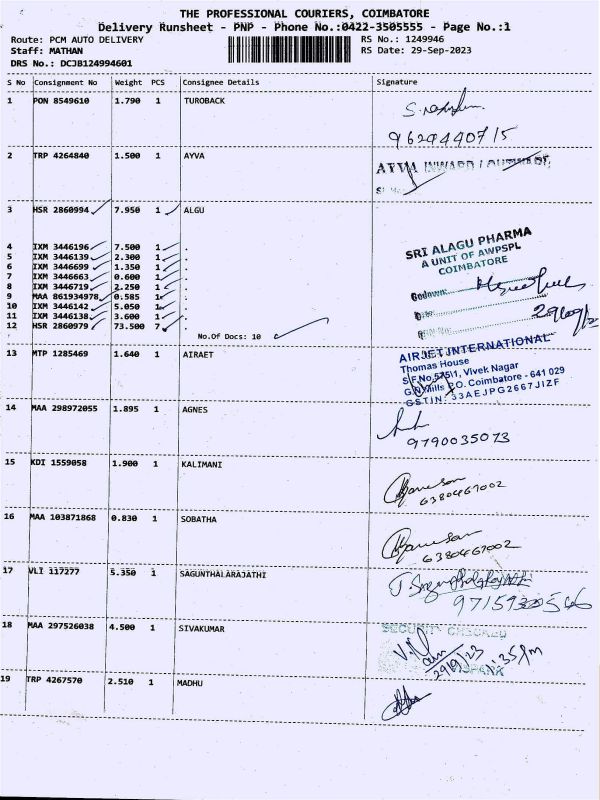 THE PROFESSIONAL COURIERS, COIMBATORE
Delivery Runsheet - PNP - Phone No.:0422-3505555 - Page No.:1
Route: PCM AUTO DELIVERY RS No.: 1249946
Staff: MATHAN RS Date: 29-Sep-2023
DRS No.: DCJB124994601
S No Consignment No Weight PCS Consignee Details Signature
1 PON 8549610 1.790 1 TUROBACK
9629440715
2 TRP 4264840 1.500 1 AYVA
AYVA INWARD
3 HSR 2860994 7.950 1 ALGU
SRI ALAGU PHARMA
A UNIT OF AWPSPL
COIMBATORE
4 IXM 3446196 7.500 1 .
5 IXM 3446139 2.300 1 .
6 IXM 3446699 1.350 1 .
7 IXM 3446663 0.600 1 .
8 IXM 3446719 2.250 1 .
9 MAA 861934978 0.585 1 .
10 IXM 3446142 5.050 1 .
11 IXM 3446138 3.600 1 .
12 HSR 2860979 73.500 7 .
Godown:
No.Of Docs: 10
13 MTP 1285469 1.640 1 AIRAET
AIRJET INTERNATIONAL
Thomas House
S.F.No.575/1, Vivek Nagar
G.N.Mills P.O. Coimbatore - 641 029
GSTIN: 33AEJPG2667J1ZF
14 MAA 298972055 1.895 1 AGNES
9790035073
15 KDI 1559058 1.900 1 KALIMANI
6380467002
16 MAA 103871868 0.830 1 SOBATHA
6380467002
17 VLI 117277 5.350 1 SAGUNTHALARAJATHI
18 MAA 297526038 4.500 1 SIVAKUMAR
SECURITY CHECKED
29/9/23 1:35 pm
19 TRP 4267570 2.510 1 MADHU